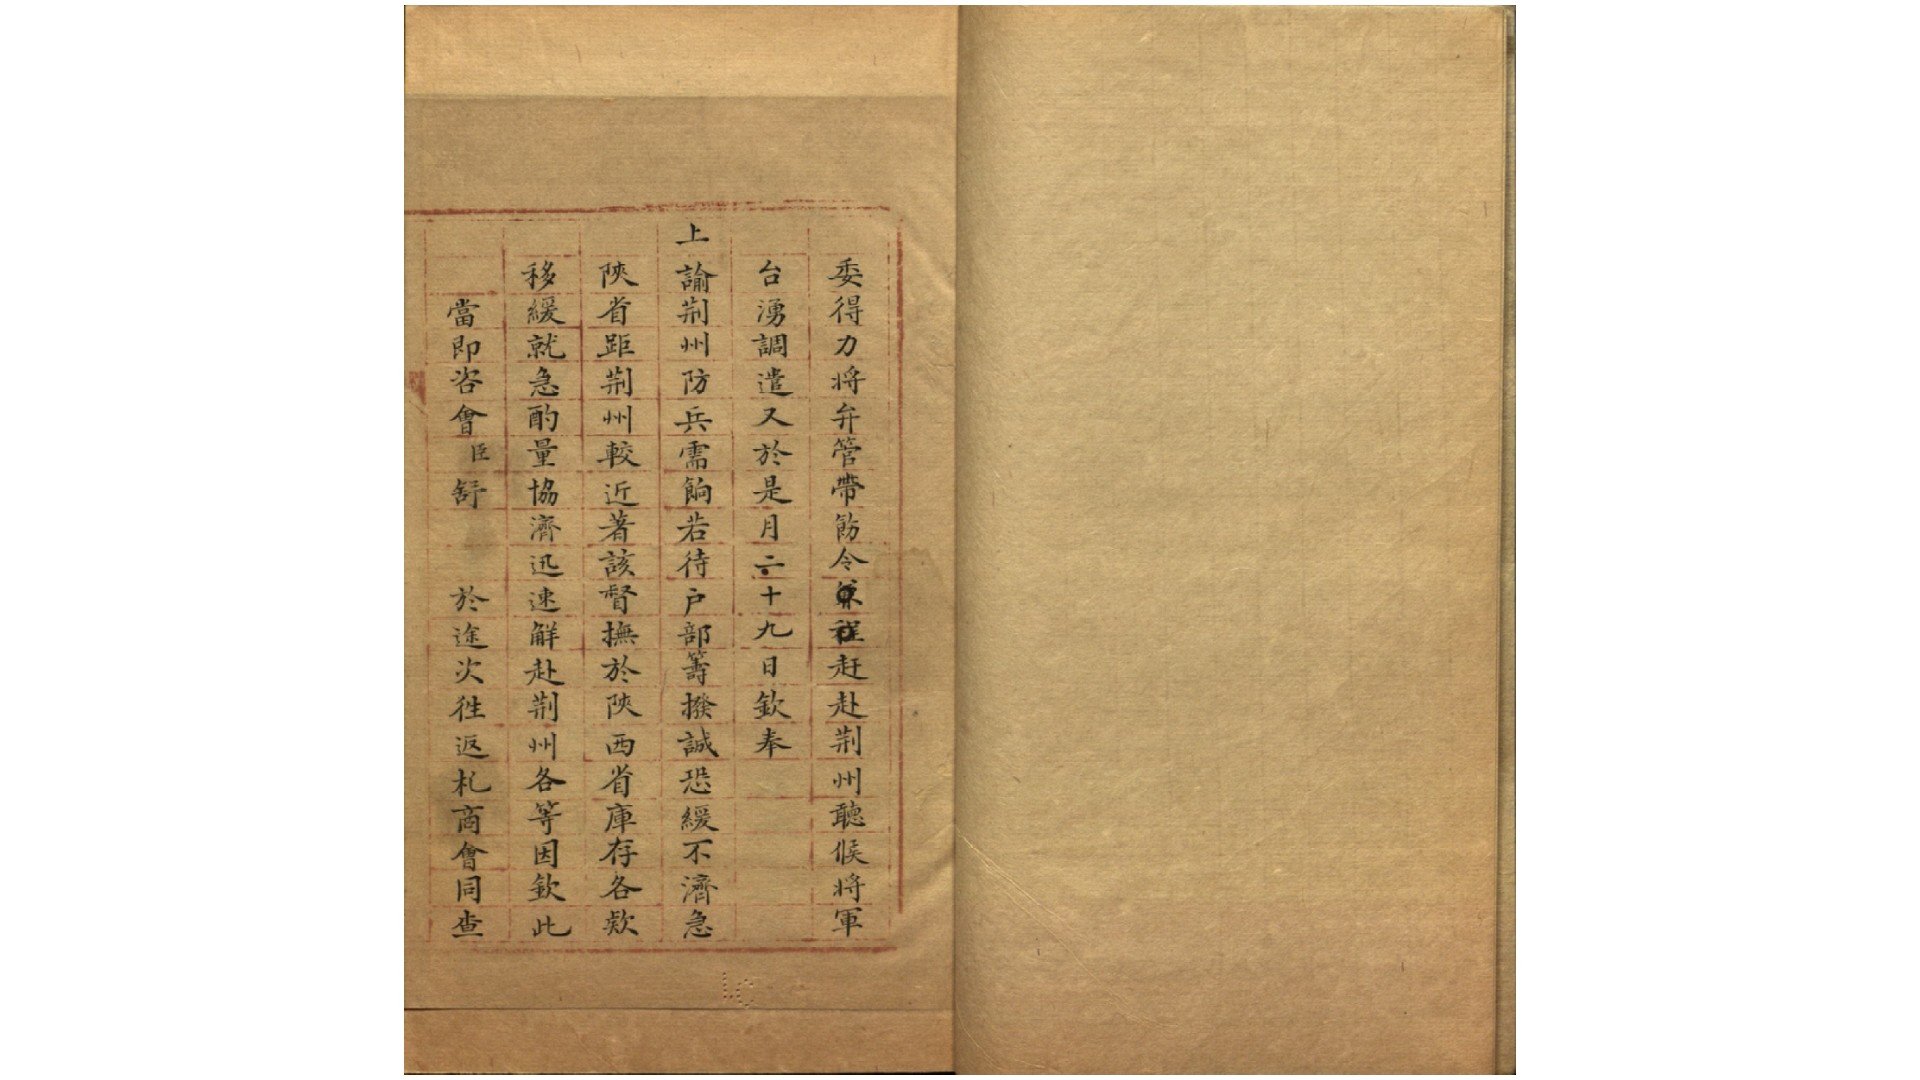 委得力将弁管帶飭令兼程赶赴荆州聽候将軍
台湧調遣又於是月二十九日欽奉
上諭荆州防兵需餉若待户部籌撥誠恐緩不濟急
陝省距荆州較近著該督撫於陝西省庫存各欵
移緩就急酌量協濟迅速觧赴荆州各等因欽此
當即咨會臣舒 於途次徃返札商會同查